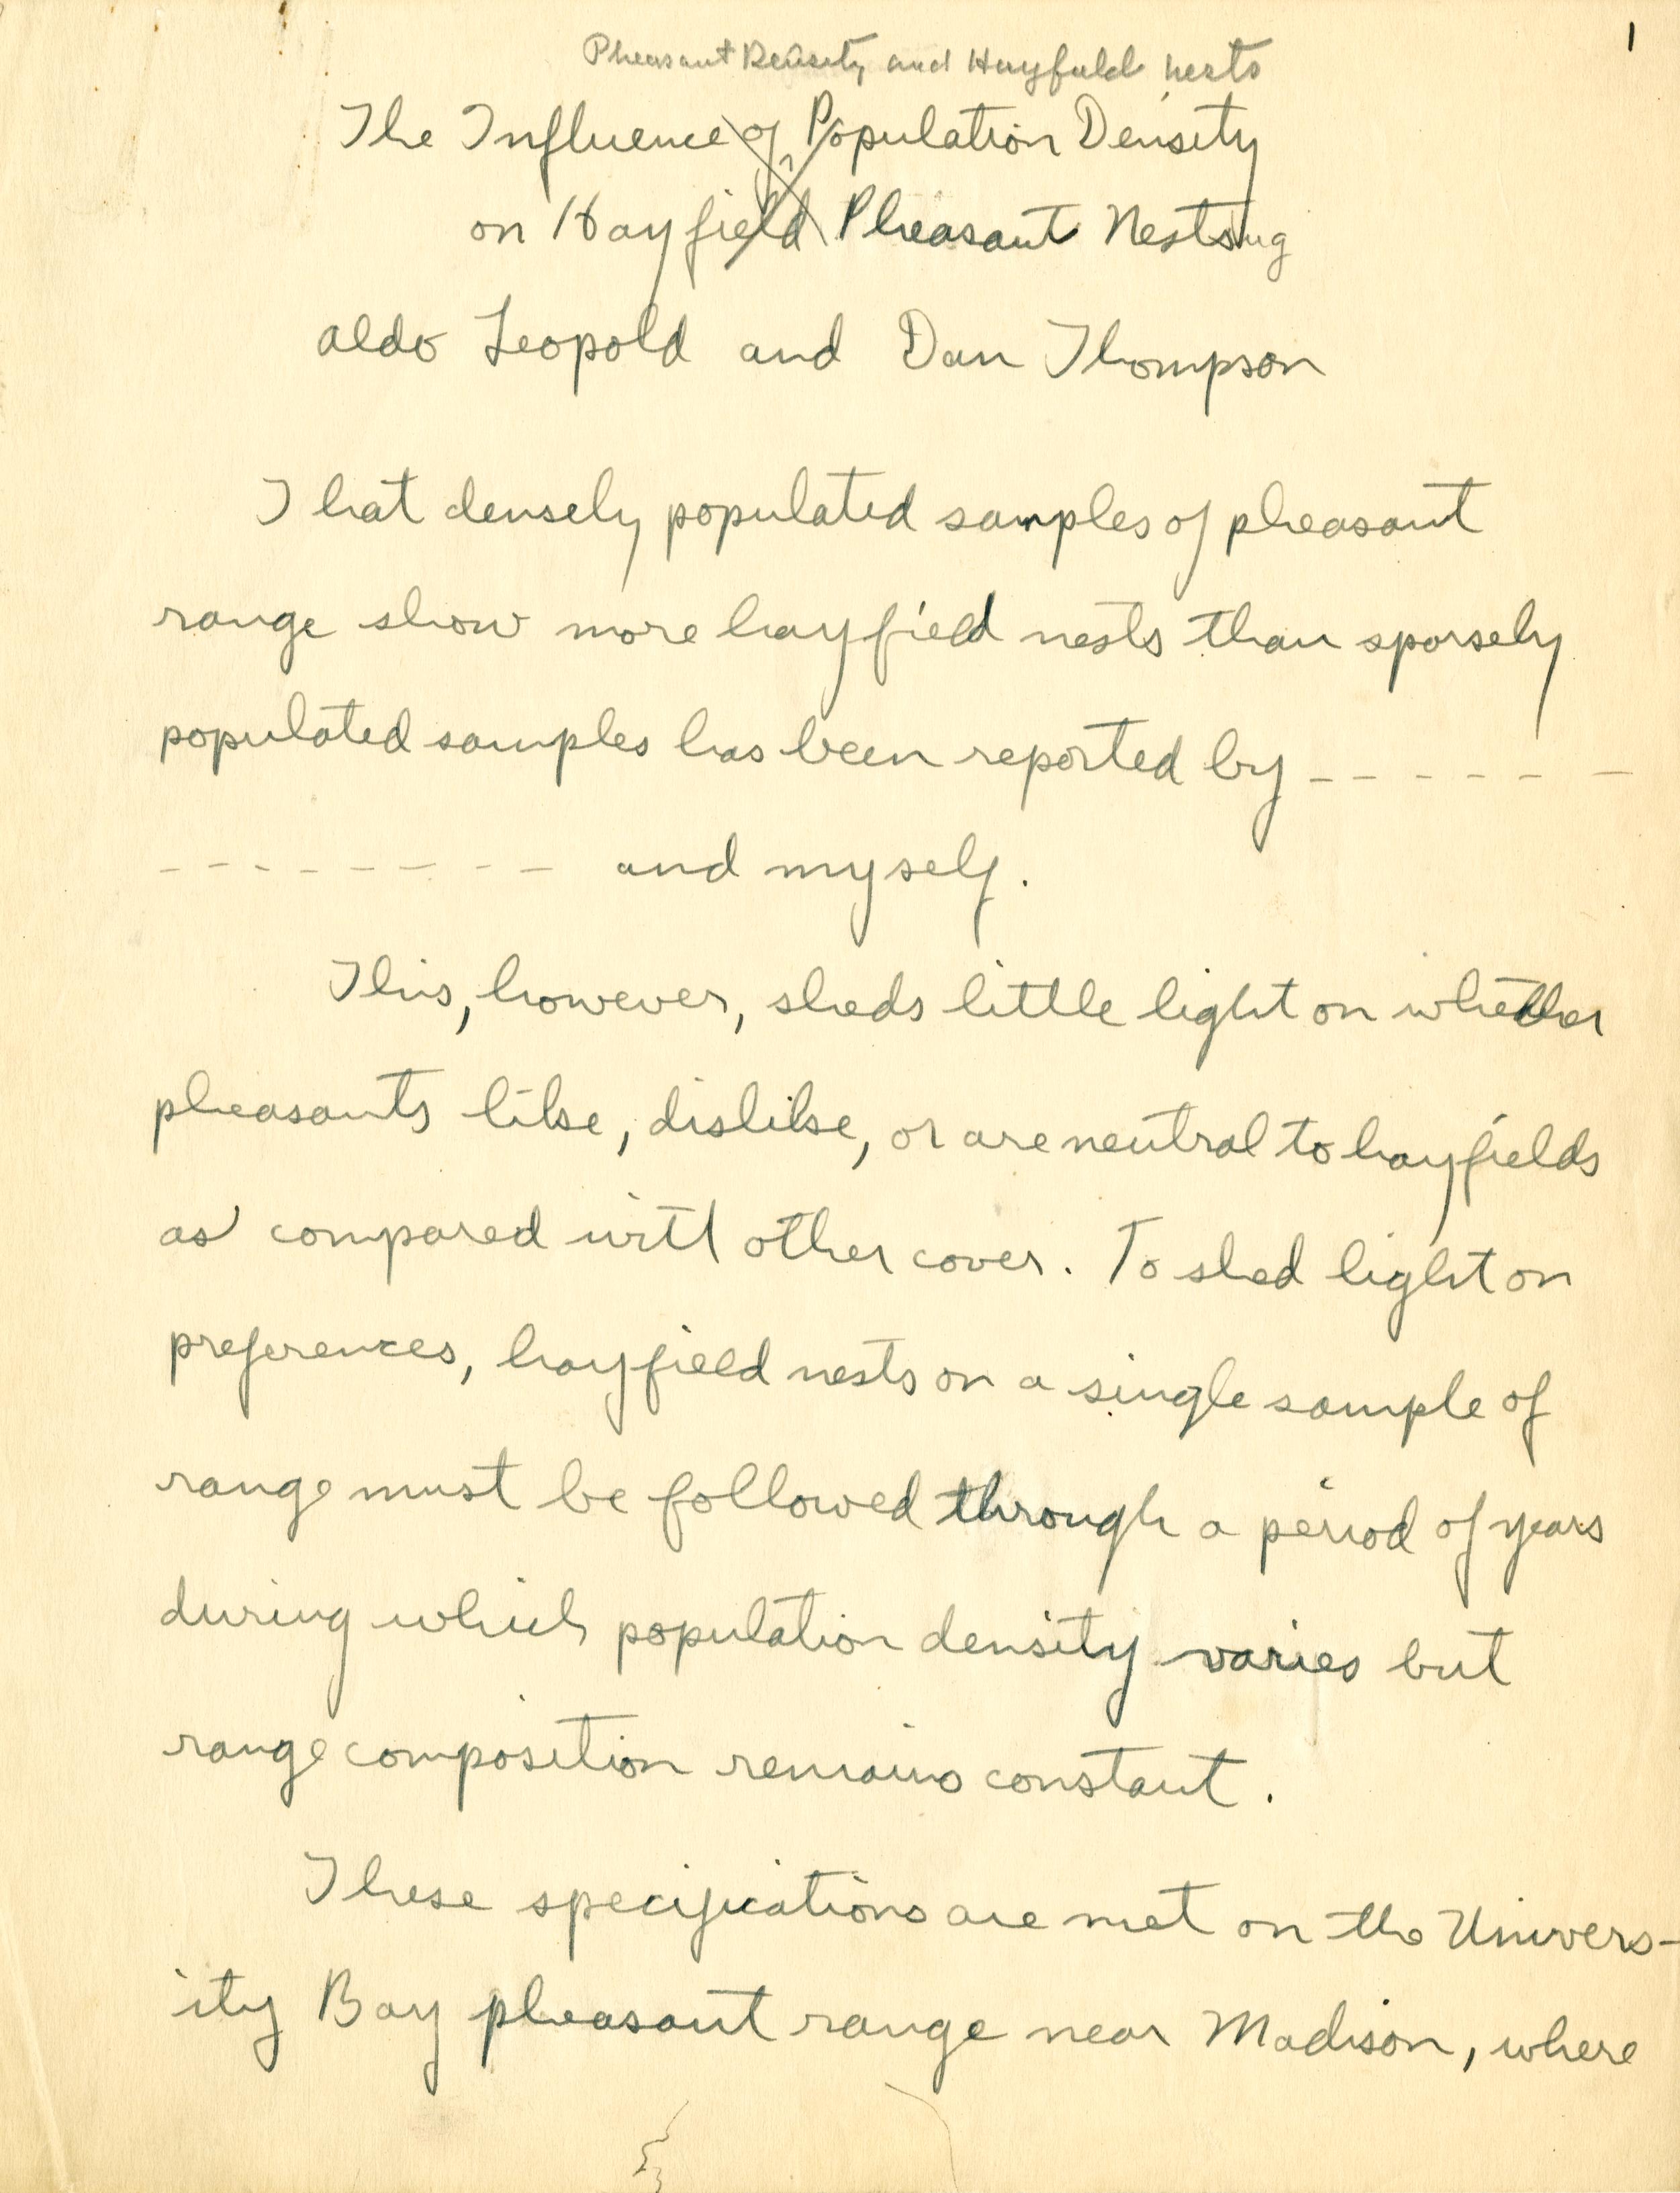 1
Pheasant Density and Hayfield nests
The Influence of Population Density
on Hayfield Pheasant Nesting
Aldo Leopold and Dan Thompson
That densely populated samples of pheasant
range show more hayfield nests than sparsely
populated samples has been reported by - - - - - -
- - - - - - - - - and myself.
This, however, sheds little light on whether
pheasants like, dislike, or are neutral to hayfields
as compared with other cover. To shed light on
preferences, hayfield nests on a single sample of
range must be followed through a period of years
during which population density varies but
range composition remains constant.
These specifications are met on the Univers-
ity Bay pheasant range near Madison, where